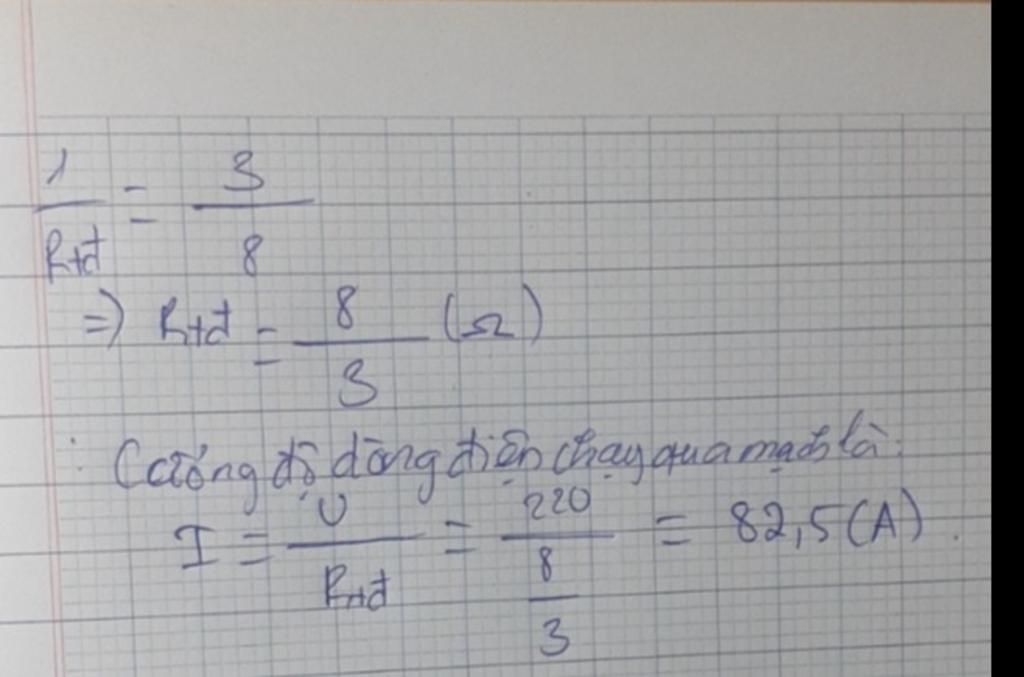 1/Rtđ = 3/8
=> Rtđ = 8/3 (Ω)
Cường độ dòng điện chạy qua mạch là
I = U/Rtđ = 220/(8/3) = 82,5(A).